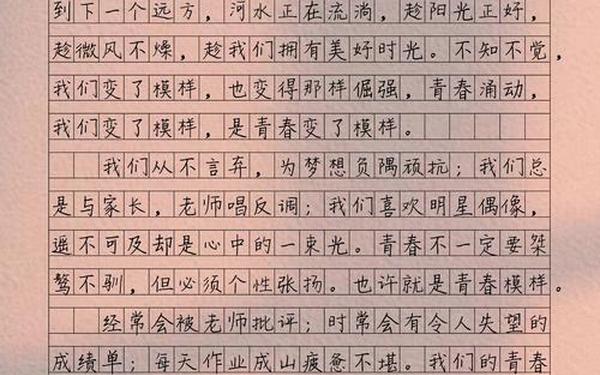 到下一个远方，河水正在流淌，趁阳光正好，
趁微风不燥，趁我们拥有美好时光。不知不觉，
我们变了模样，也变得那样倔强，青春涌动，
我们变了模样，是青春变了模样。
我们从不言弃，为梦想负隅顽抗；我们总
是与家长，老师唱反调；我们喜欢明星偶像，
遥不可及却是心中的一束光。青春不一定要桀
骜不驯，但必须个性张扬。也许就是青春模样。
经常会被老师批评；时常会有令人失望的
成绩单；每天作业成山疲惫不堪。我们的青春